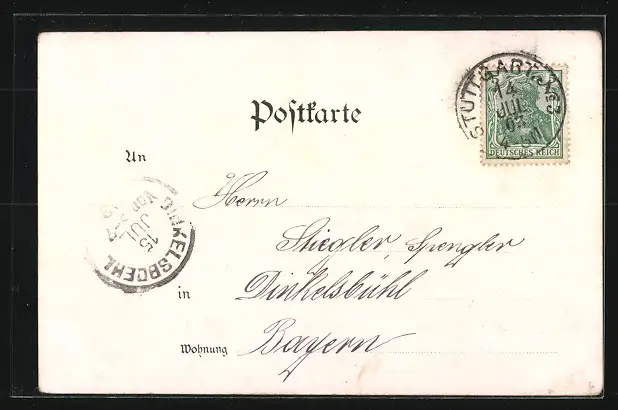 Postkarte
STUTTGART
14
JUL
DEUTSCHES REICH
An
Herrn
Stiegler, Spengler
in Dinkelsbühl
Wohnung Bayern
DINKELSBUEHL
15
JUL